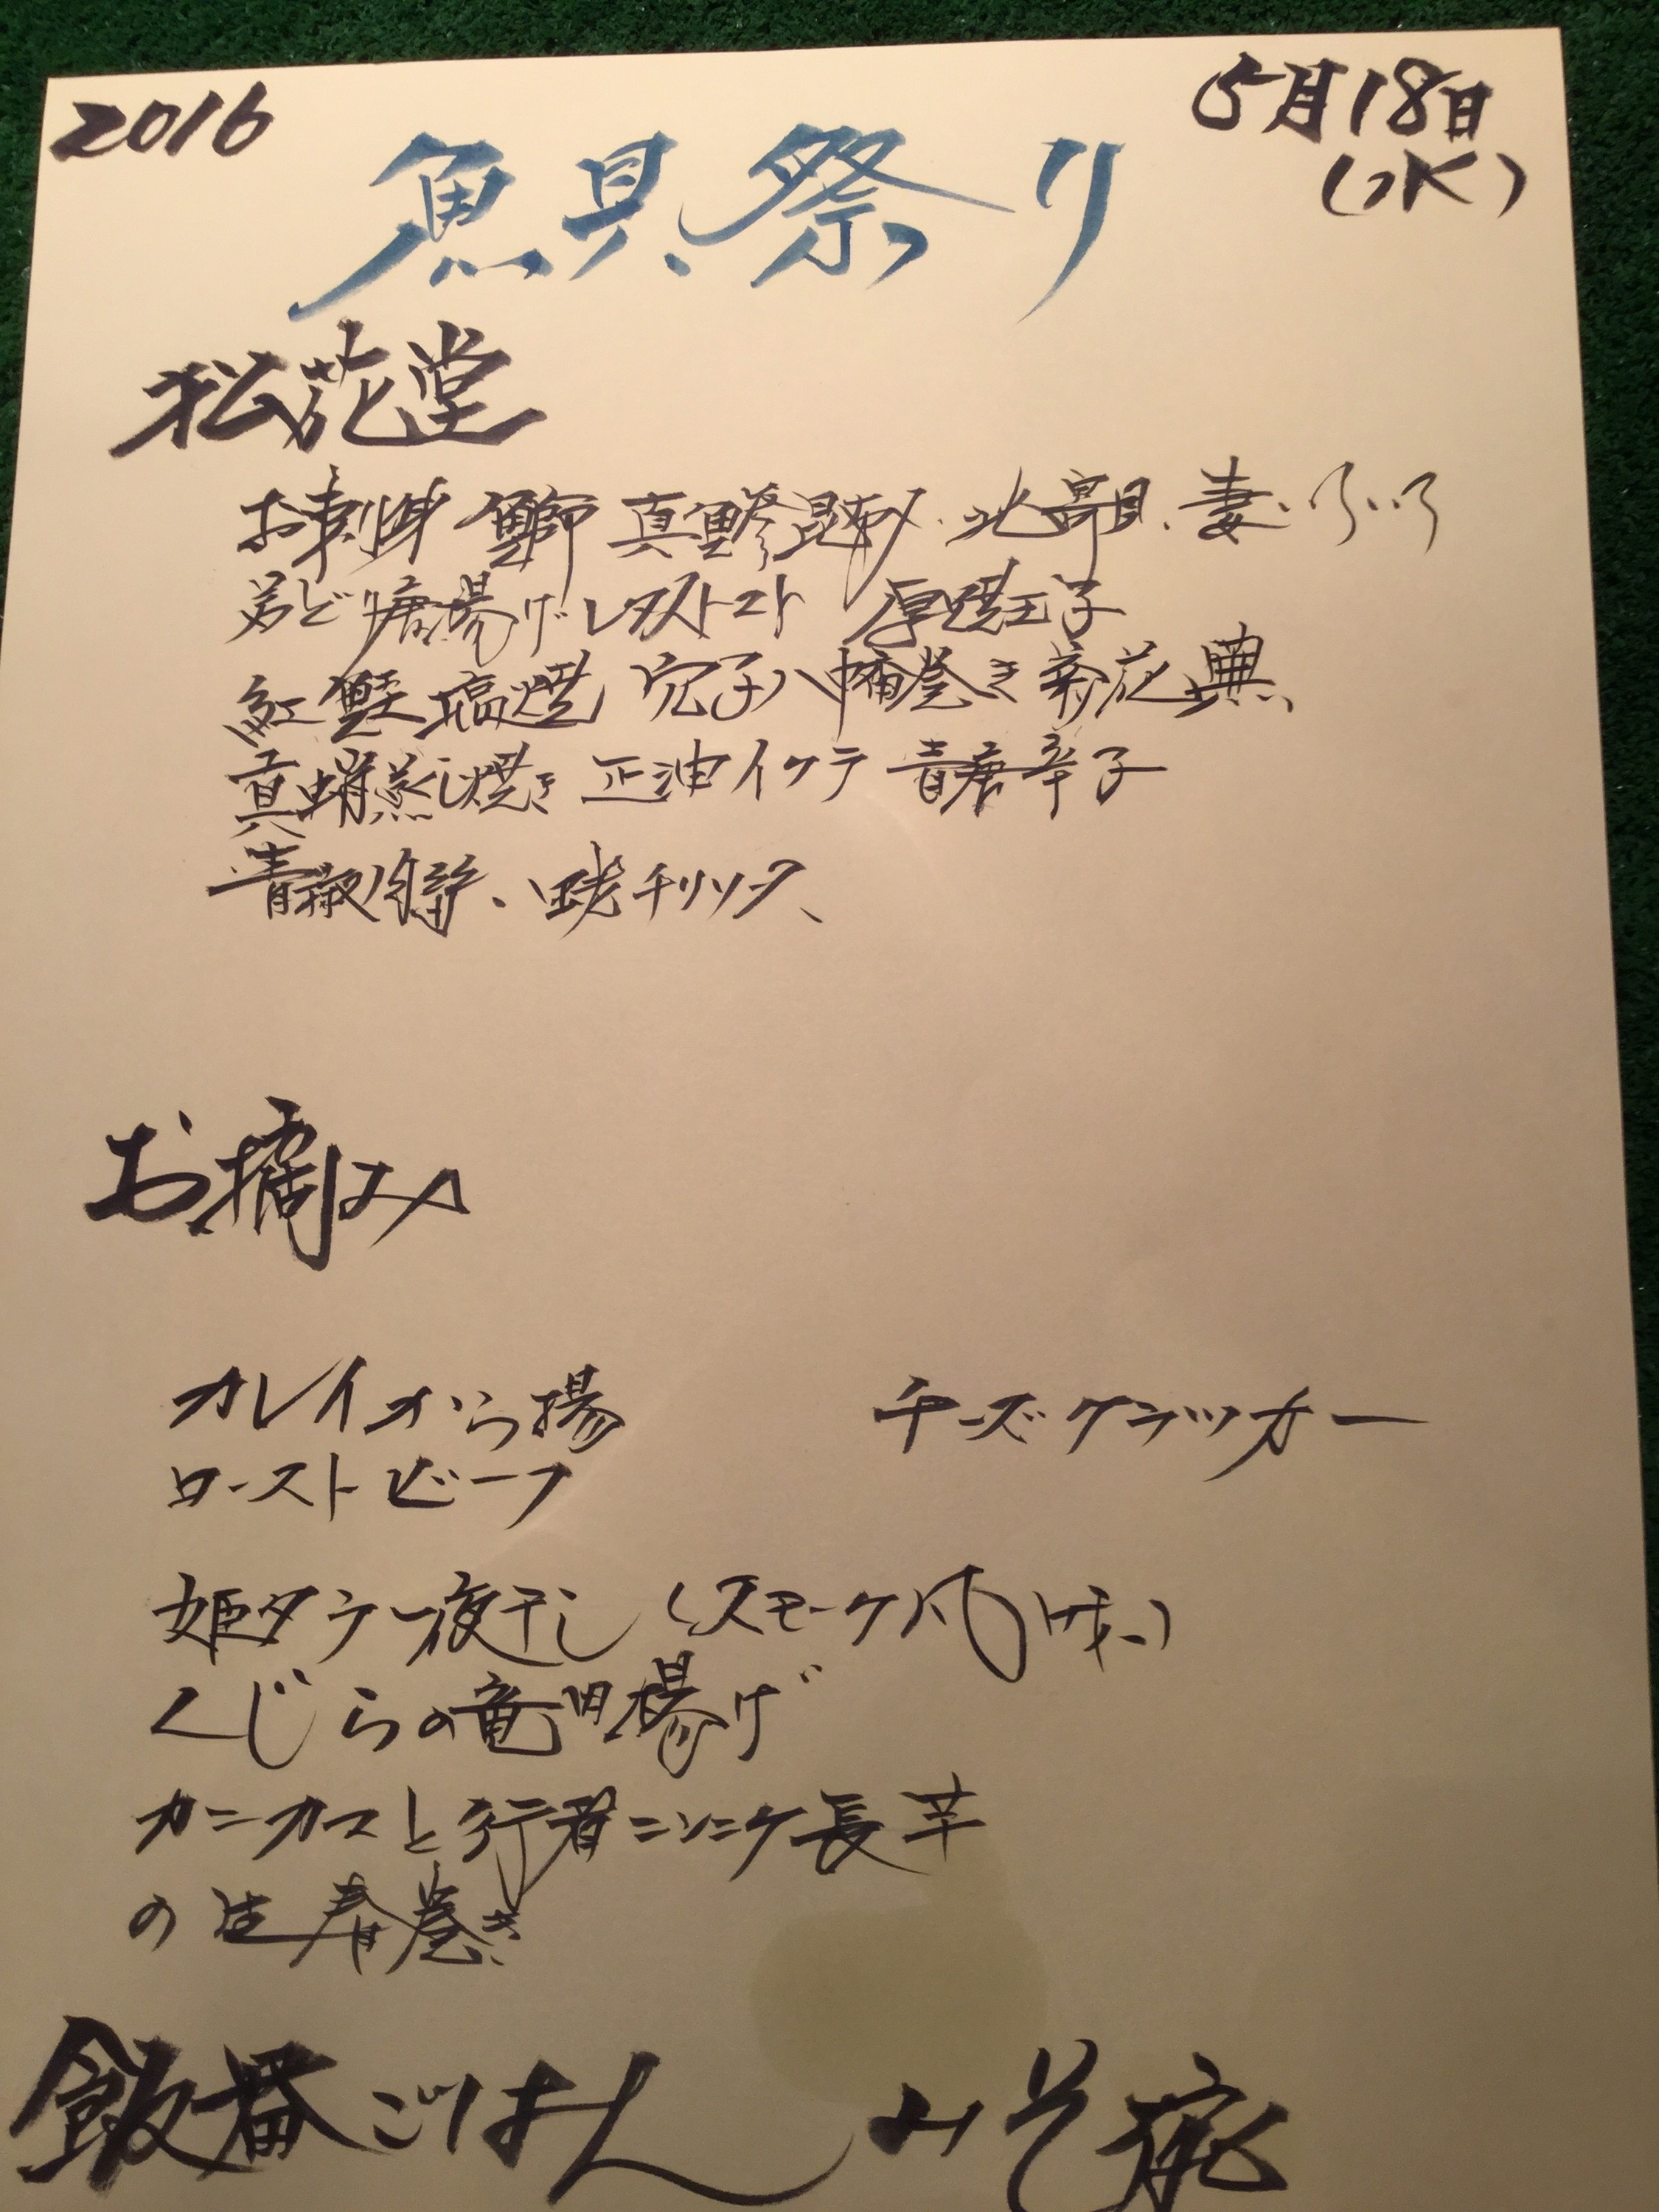 2016
5月18日
(水)
魚貝祭り
松花堂
お刺身 鰤 真鯵 昆布〆、北寄貝、妻いろいろ
若どり唐揚げ レタス トマト 厚焼玉子
紅鮭塩焼 穴子八幡巻き 菊花
真蛸蒸し焼き 正油イクラ 青唐辛子
青椒肉絲、チリソース、
お摘み
カレイから揚
チーズクラッカー
ローストビーフ
姫タラ一夜干し (スモーク風味)
くじらの竜田揚げ
カニカマと行者ニンニク長芋
の生春巻き
飯番 ごはん みそ椀